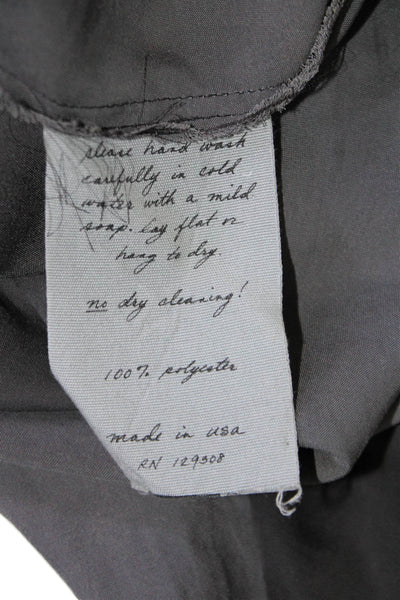 please hand wash
carefully in cold
water with a mild
soap. lay flat or
hang to dry.
no dry cleaning!
100% polyester
made in usa
RN 129308